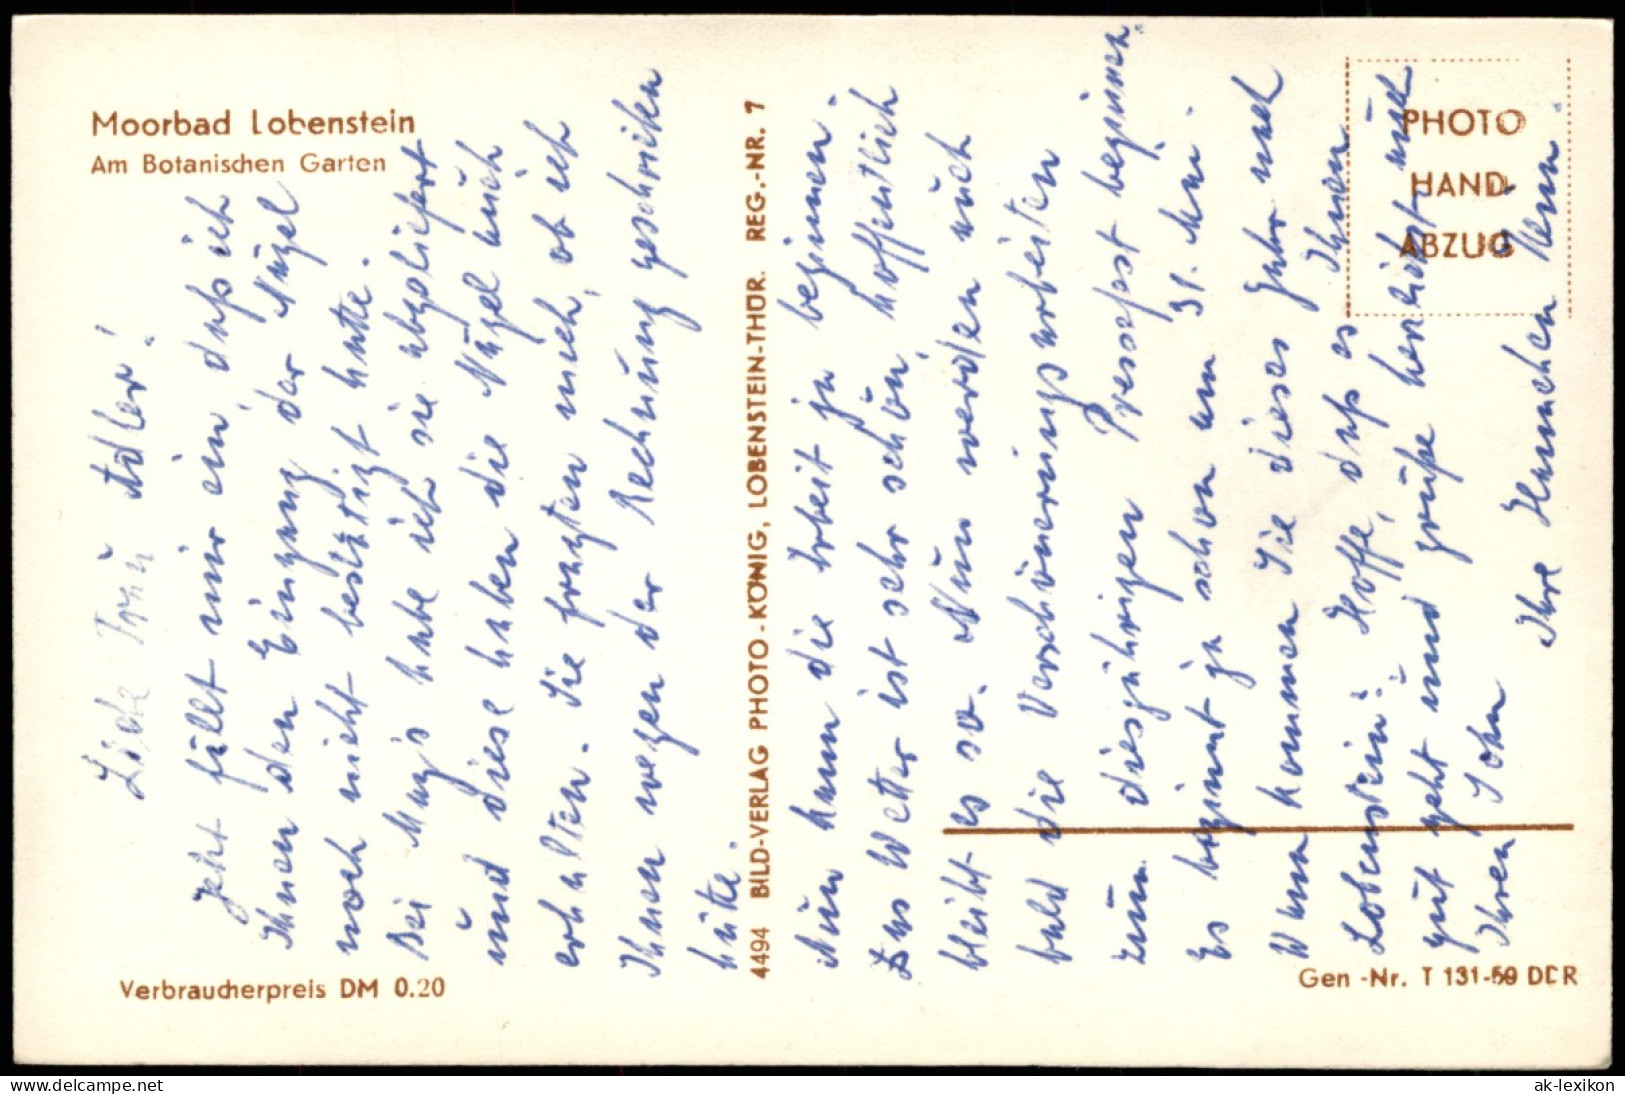 Moorbad Lobenstein
Am Botanischen Garten
Liebe Frau Adler!
Jetzt fällt mir ein, daß ich
Ihnen den Eingang der Nägel
noch nicht bestätigt hatte.
Bei habe ich sie abgeliefert
und diese haben die Nägel auch
erhalten. Sie fragten mich, ob ich
Ihnen wegen der Rechnung geschrieben
hätte.
Verbraucherpreis DM 0.20
4494 BILD-VERLAG PHOTO-KÖNIG, LOBENSTEIN-THÜR. REG.-NR. 7
PHOTO
HAND-
ABZUG
Nun kann die Arbeit ja beginnen.
Das Wetter ist sehr schön, hoffentlich
bleibt es so. Nun werden auch
bald die Verschönerungsarbeiten
zum diesjährigen Pressefest beginnen.
Es beginnt ja schon am 31. Mai.
Wann kommen Sie dieses Jahr nach
Lobenstein? Hoffe, daß es Ihnen
gut geht und grüße herzlichst auch
Ihren Sohn
Ihre Hannchen
Gen.-Nr. T 131-59 DDR
yes, still have the
ak-lexikon